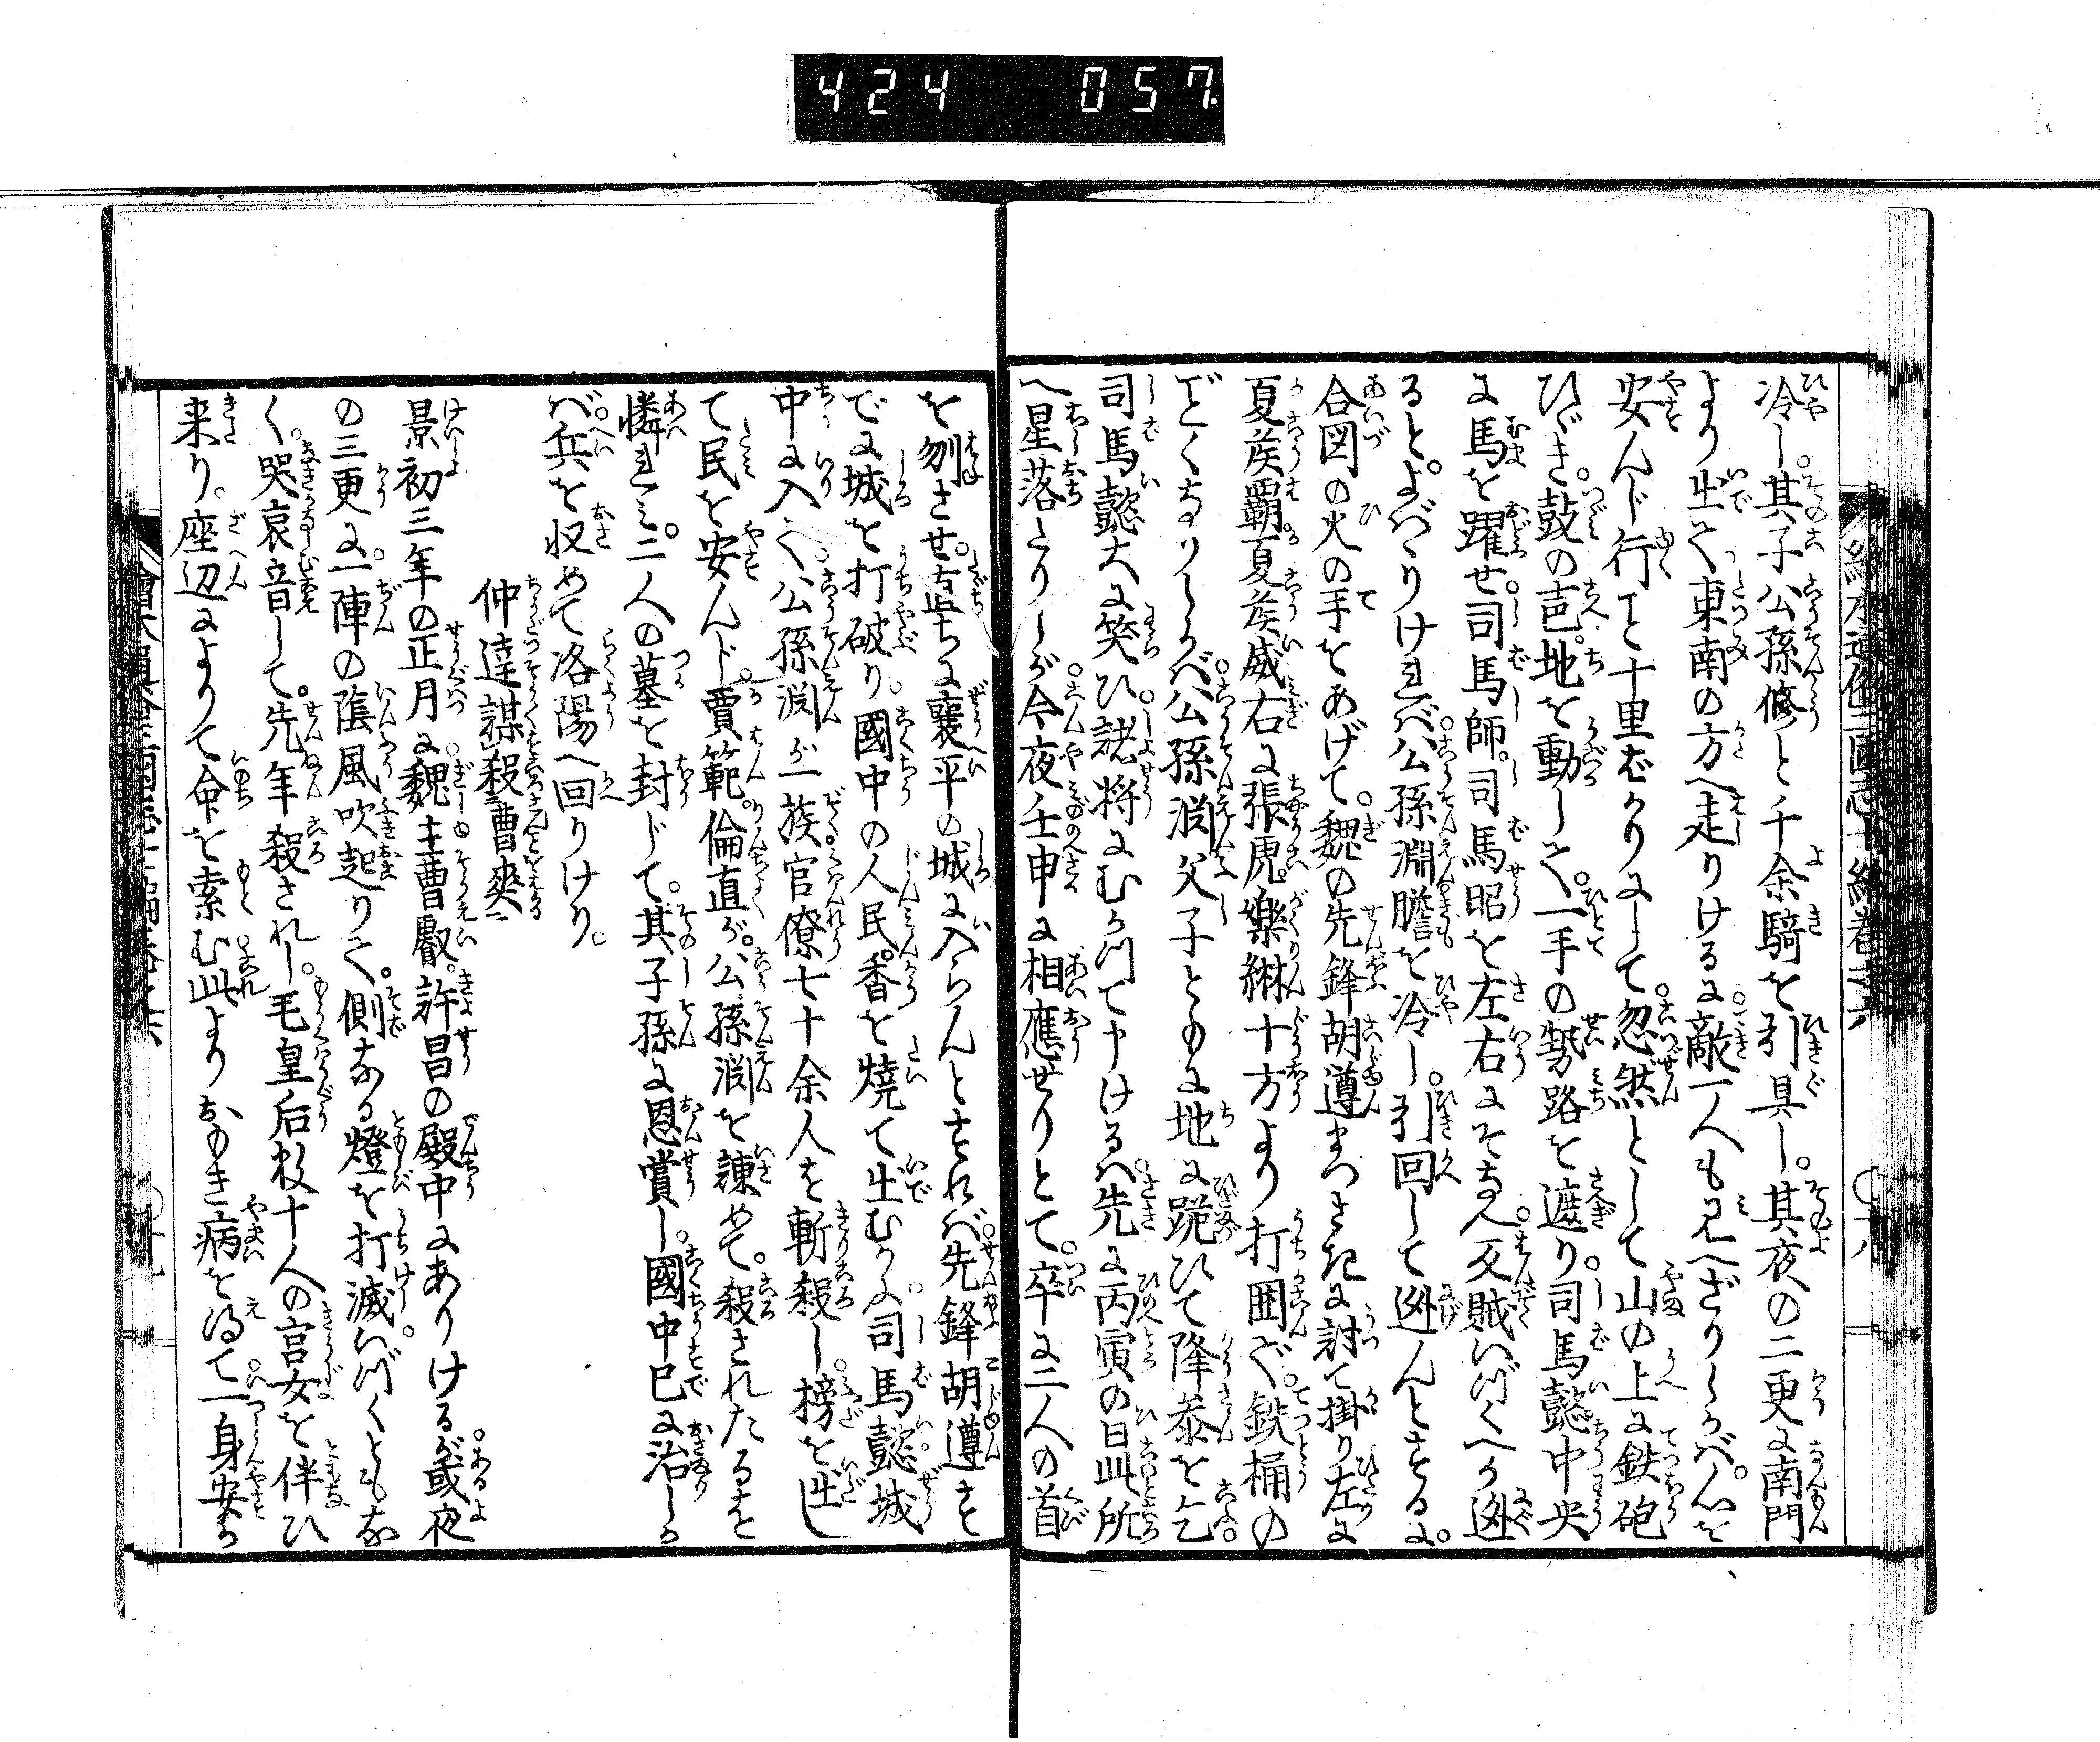 424 057
冷し。其子公孫修と千余騎を引具し。其夜の二更に南門
より出て東南の方へ走りけるに敵一人も見へざりしかば。心を
安んじ行こと十里ばかりにして忽然として山の上に鉄砲
ひゞき。鼓の声地を動して。一手の勢路を遮り。司馬懿中央
に馬を躍せ司馬師。司馬昭を左右にそなへ反賊いづくへか逃
ると。よばゝりければ公孫淵膽を冷し。引回して逃んとするに。
合図の火の手をあげて。魏の先鋒胡遵まつさきに討て掛り左に
夏侯覇夏侯威右に張虎樂綝十方より打囲で。鉄桶の
ごとくなりしかば。公孫淵父子ともに地に跪ひて降参を乞。
司馬懿大に笑ひ。諸将にむかつて申けるは。先に丙寅の日此所
へ星落たりしが今夜壬申に相應ぜりとて。卒に二人の首
を刎させ。直ちに襄平の城に入らんとすれば。先鋒胡遵す
でに城を打破り。國中の人民。香を焼て出むかふ司馬懿城
中に入て公孫淵が一族官僚七十余人を斬殺し。榜を出し
て民を安んじ。賈範。倫直が。公孫淵を諫めて。殺されたるを
憐れみ。二人の墓を封じて。其子孫に恩賞し。國中已に治しか
ば。兵を収めて洛陽へ回りけり。
仲達謀殺曹爽
景初三年の正月に魏主曹叡。許昌の殿中にありけるが或夜
の三更に。一陣の陰風吹起りて。側なる燈を打滅いづくともな
く。哭哀音して。先年殺されし毛皇后数十人の宮女を伴ひ
来り。座辺によりて命を索む此よりおもき病を得て一身安か